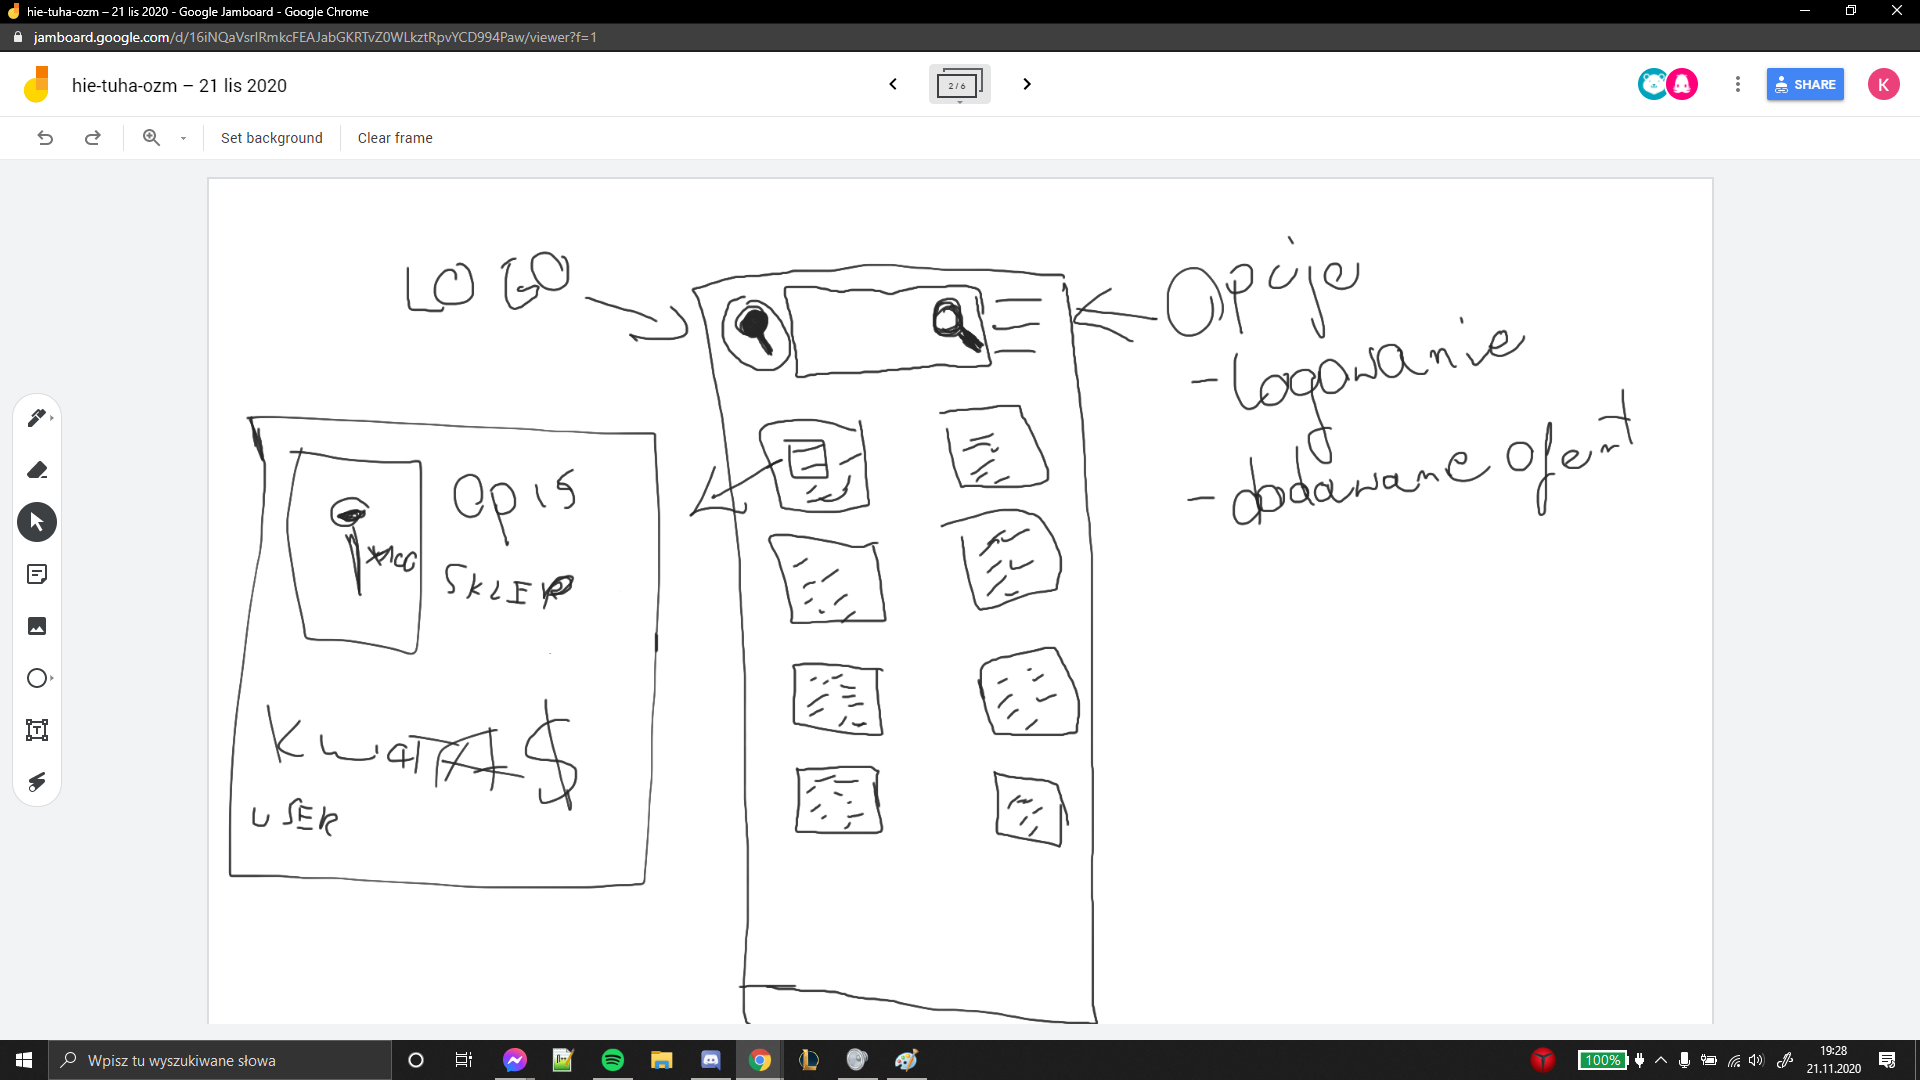 hie-tuha-ozm – 21 lis 2020 - Google Jamboard - Google Chrome
jamboard.google.com/d/16iNQaVsrlRmkcFEAJabGKRTvZ0WLkztRpvYCD994Paw/viewer?f=1
hie-tuha-ozm – 21 lis 2020
2 / 6
SHARE
K
Set background
Clear frame
LOGO
Opcje
- logowanie
- dodawane ofert
Opis
SKLEP
Kwota $
USER
Wpisz tu wyszukiwane słowa
100%
19:28
21.11.2020